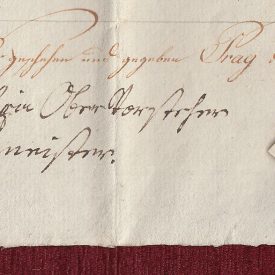 geschehen und gegeben Prag
Ober Vorsteher
meister.